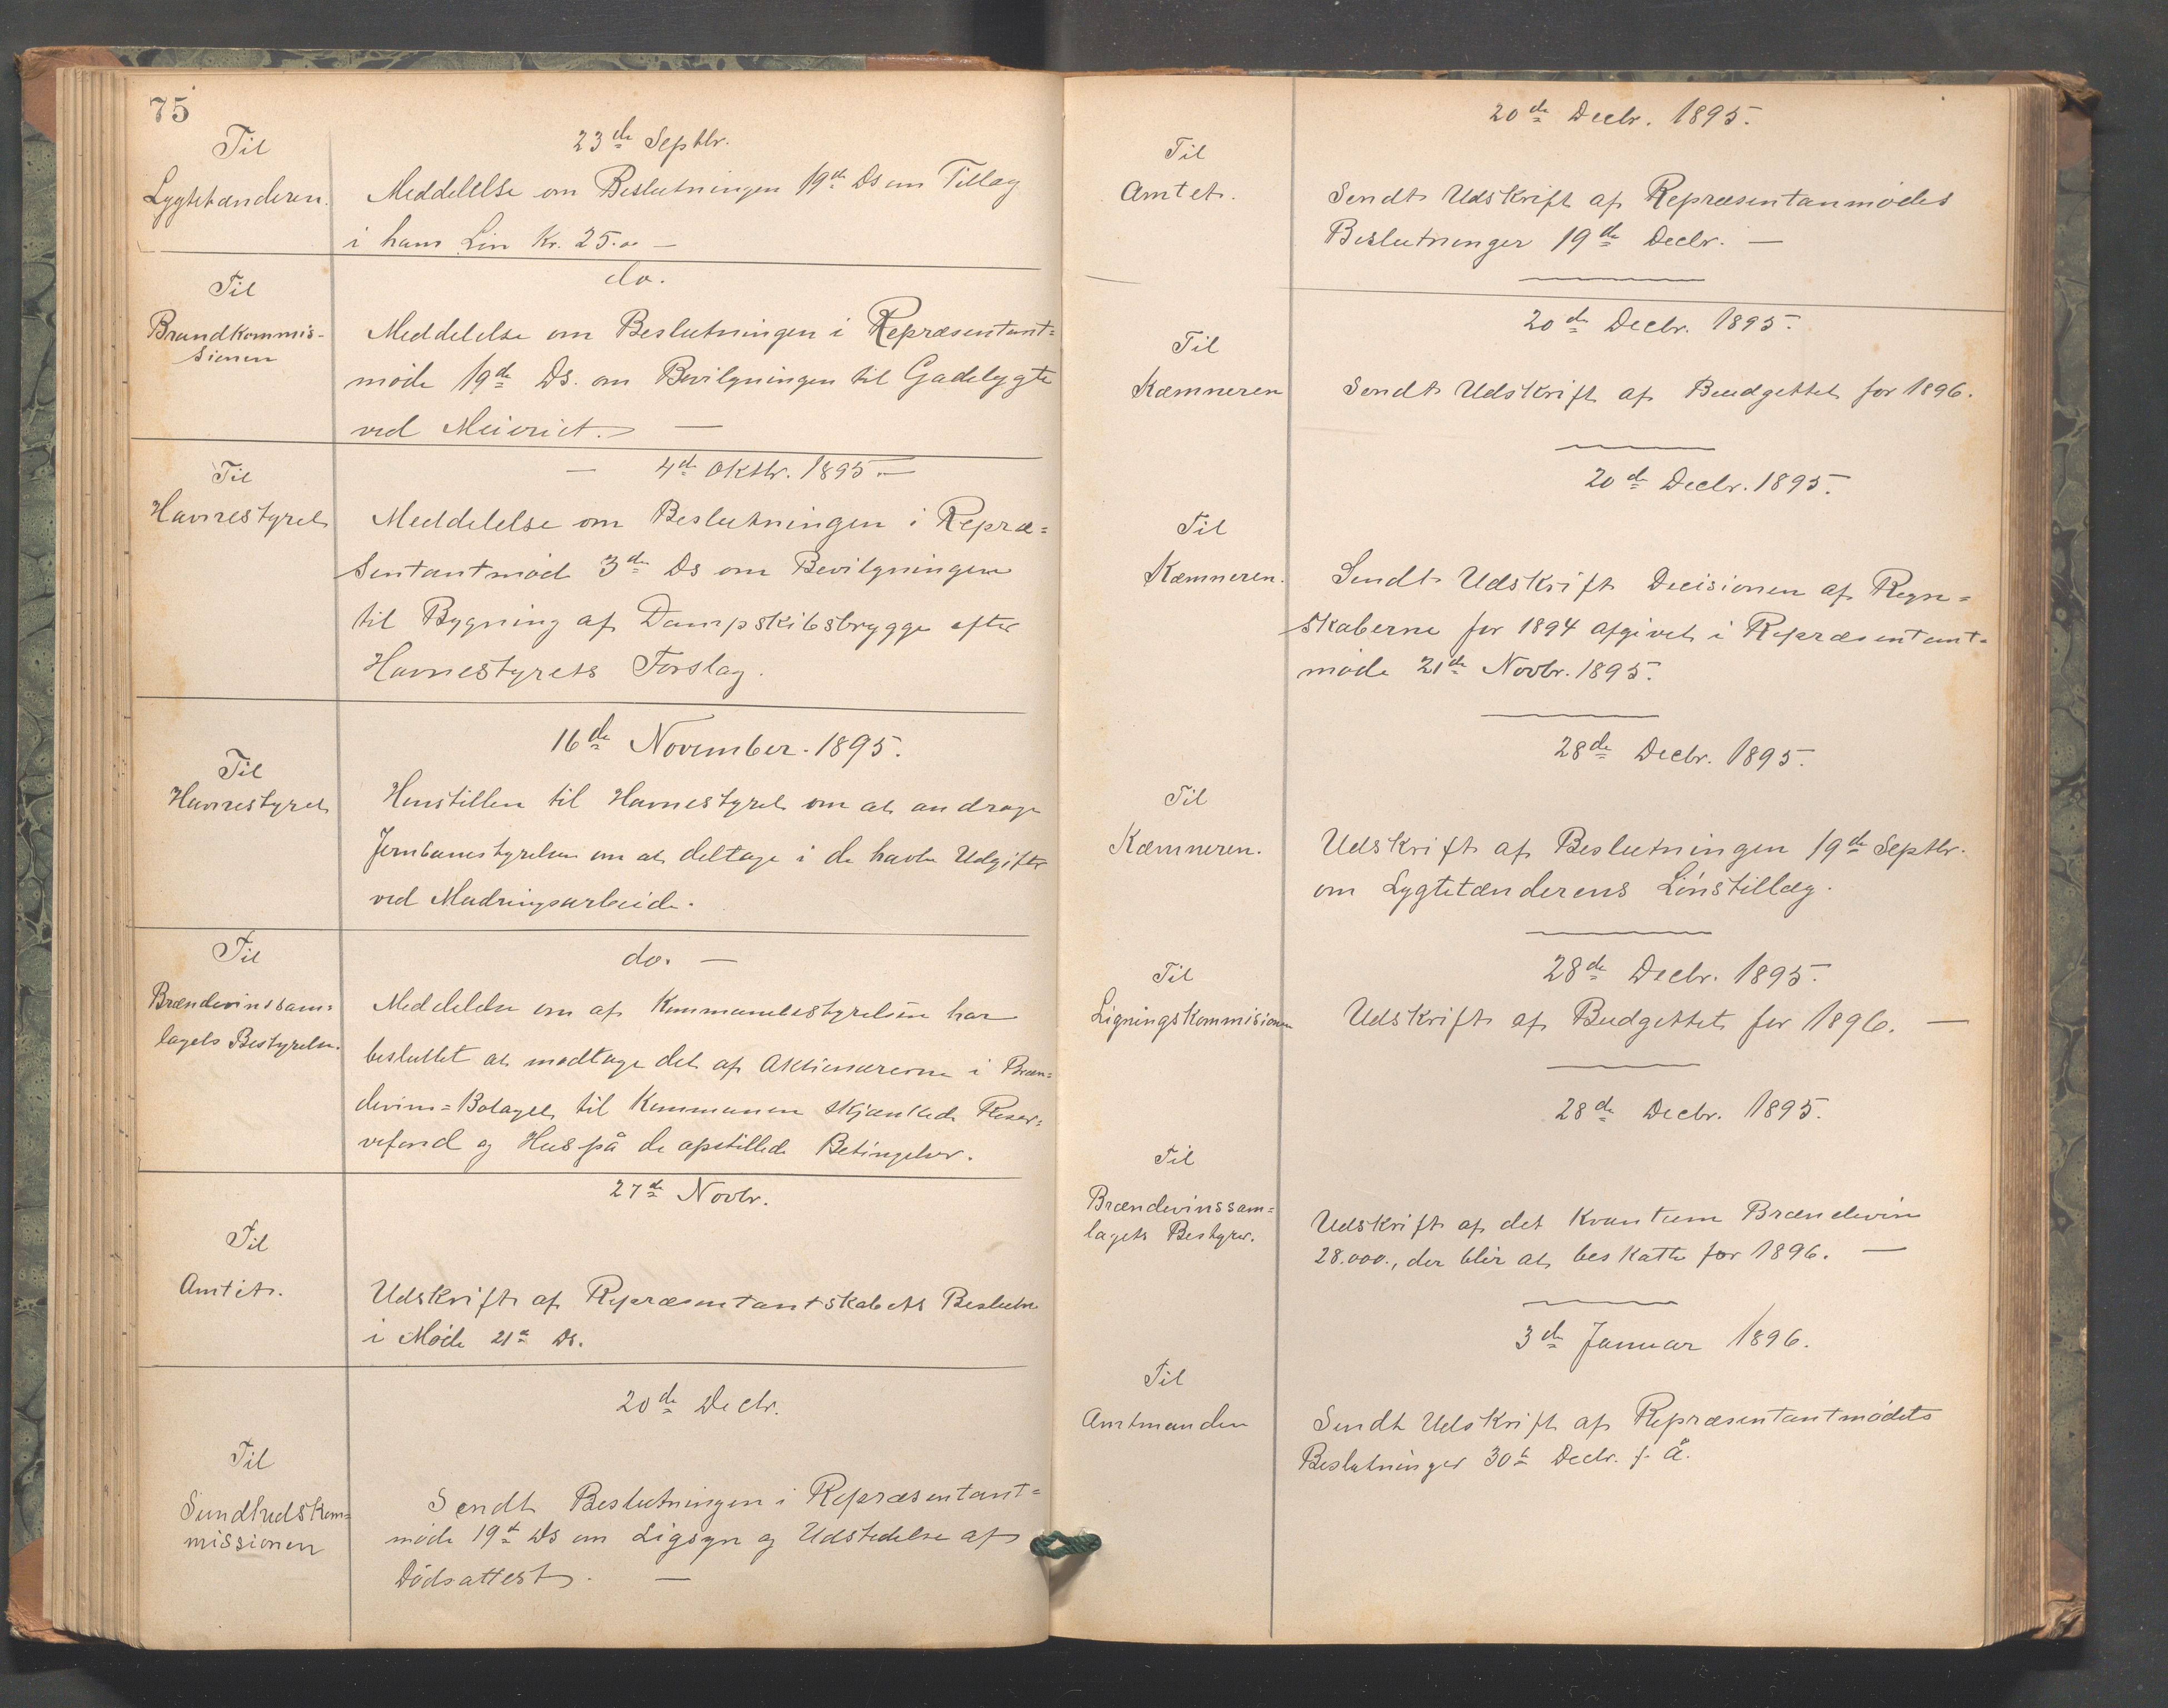 75
Til
Lygtetænderen.
23de Septbr.
Meddelelse om Beslutningen 19de Ds om Tillæg
i hans Løn Kr. 25.00 —
Til
Brandkommis-
sionen
do.
Meddelelse om Beslutningen i Repræsentant=
møde 19de Ds. om Bevilgningen til Gadelygte
ved Meieriet. —
Til
Havnestyret
— 4de Oktbr. 1895 —
Meddelelse om Beslutningen i Repræ=
sentantmød 3de Ds om Bevilgningen
til Bygning af Dampskibsbrygge efter
Havnestyrets Forslag.
Til
Havnestyret
16de November. 1895.
Henstillen til Havnestyret om at andrage
Jernbanestyrelsen om at deltage i de havte Udgifter
ved Mudringsarbeide.
Til
Brændevinssam=
lagets Bestyrelse.
do. —
Meddelelse om at Kommunebestyrelsen har
besluttet at modtage det af Aktionærerne i Bræn=
devins=Bolaget til Kommunen skjænkede Reser=
vefond og Hus på de opstillede Betingelser.
Til
Amtet.
27de Novbr.
Udskrift af Repræsentantskabets Beslutn
i Møde 21de Ds.
Til
Sundhedskom=
missionen
20de Decbr.
Sendt Beslutningen i Repræsentant=
møde 19de Ds om Ligsyn og Udstedelse af
Dødsattest. —
20de Decbr. 1895.
Til
Amtet.
Sendt Udskrift af Repræsentanmødes
Beslutninger 19de Decbr. —
20de Decbr. 1895.
Til
Kæmneren
Sendt Udskrift af Budgettet for 1896.
20de Decbr. 1895.
Til
Kæmneren.
Sendt Udskrift Decisionen af Regn=
skaberne for 1894 afgivet i Repræsentant=
møde 21de Novbr. 1895.
28de Decbr. 1895.
Til
Kæmneren.
Udskrift af Beslutningen 19de Septbr.
om Lygtetænderens Lønstillæg.
28de Decbr. 1895.
Til
Ligningskommisionen
Udskrift af Budgettet for 1896. —
28de Decbr. 1895.
Til
Brændevinssam=
lagets Bestyrer.
Udskrift af det Kvantum Brændevin
28.000., der blir at beskatte for 1896. —
3de Januar 1896.
Til
Amtmanden
Sendt Udskrift af Repræsentantmødets
Beslutninger 30te Decbr. f. Å.